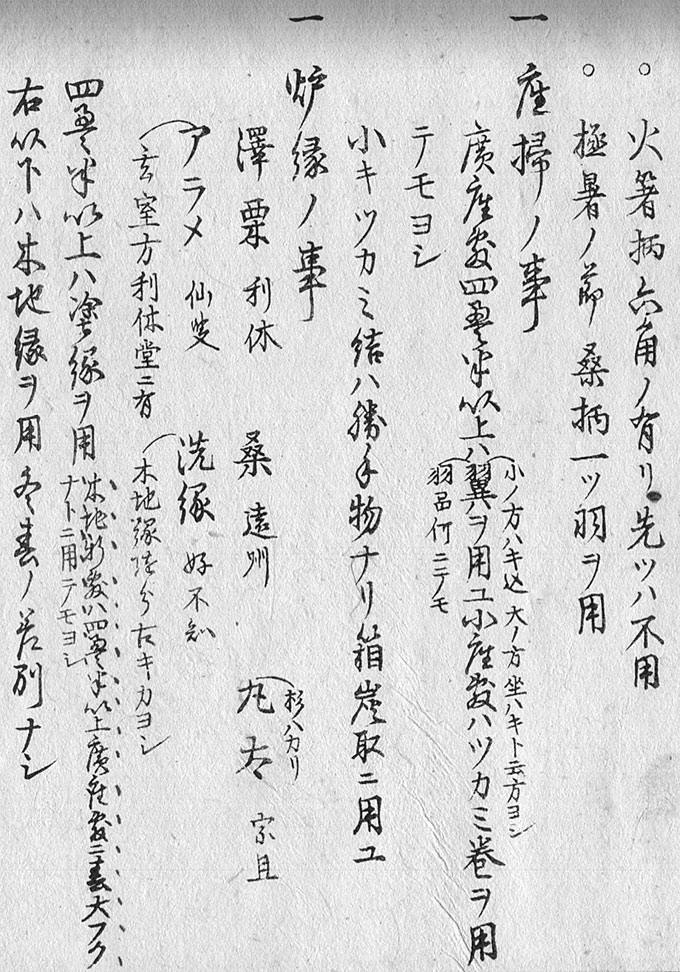 ○ 火箸柄六角ノ有リ先ツハ不用
○ 極暑ノ節桑柄一ツ羽ヲ用
一 座掃ノ事
小ノ方ハキ込大ノ方坐ハキト云方ヨシ
廣座敷四畳半以上ハ翼ヲ用ユ小座敷ハツカミ巻ヲ用
羽品何ニテモ
ニテモヨシ
小キツカミ結ハ勝手物ナリ箱炭取ニ用ユ
一 炉縁ノ事
澤栗 利休 桑 遠州 丸太 宗旦
杉ハカリ
アラメ 仙叟 洗縁 好不知
玄室方利休堂ニ有 木地縁 古キカヨシ
四畳半以上ハ塗縁ヲ用 木地 敷ハ四畳半以上廣座敷ニ春大フク
ナトニ用テモヨシ
右以下ハ木地縁ヲ用冬春ノ差別ナシ